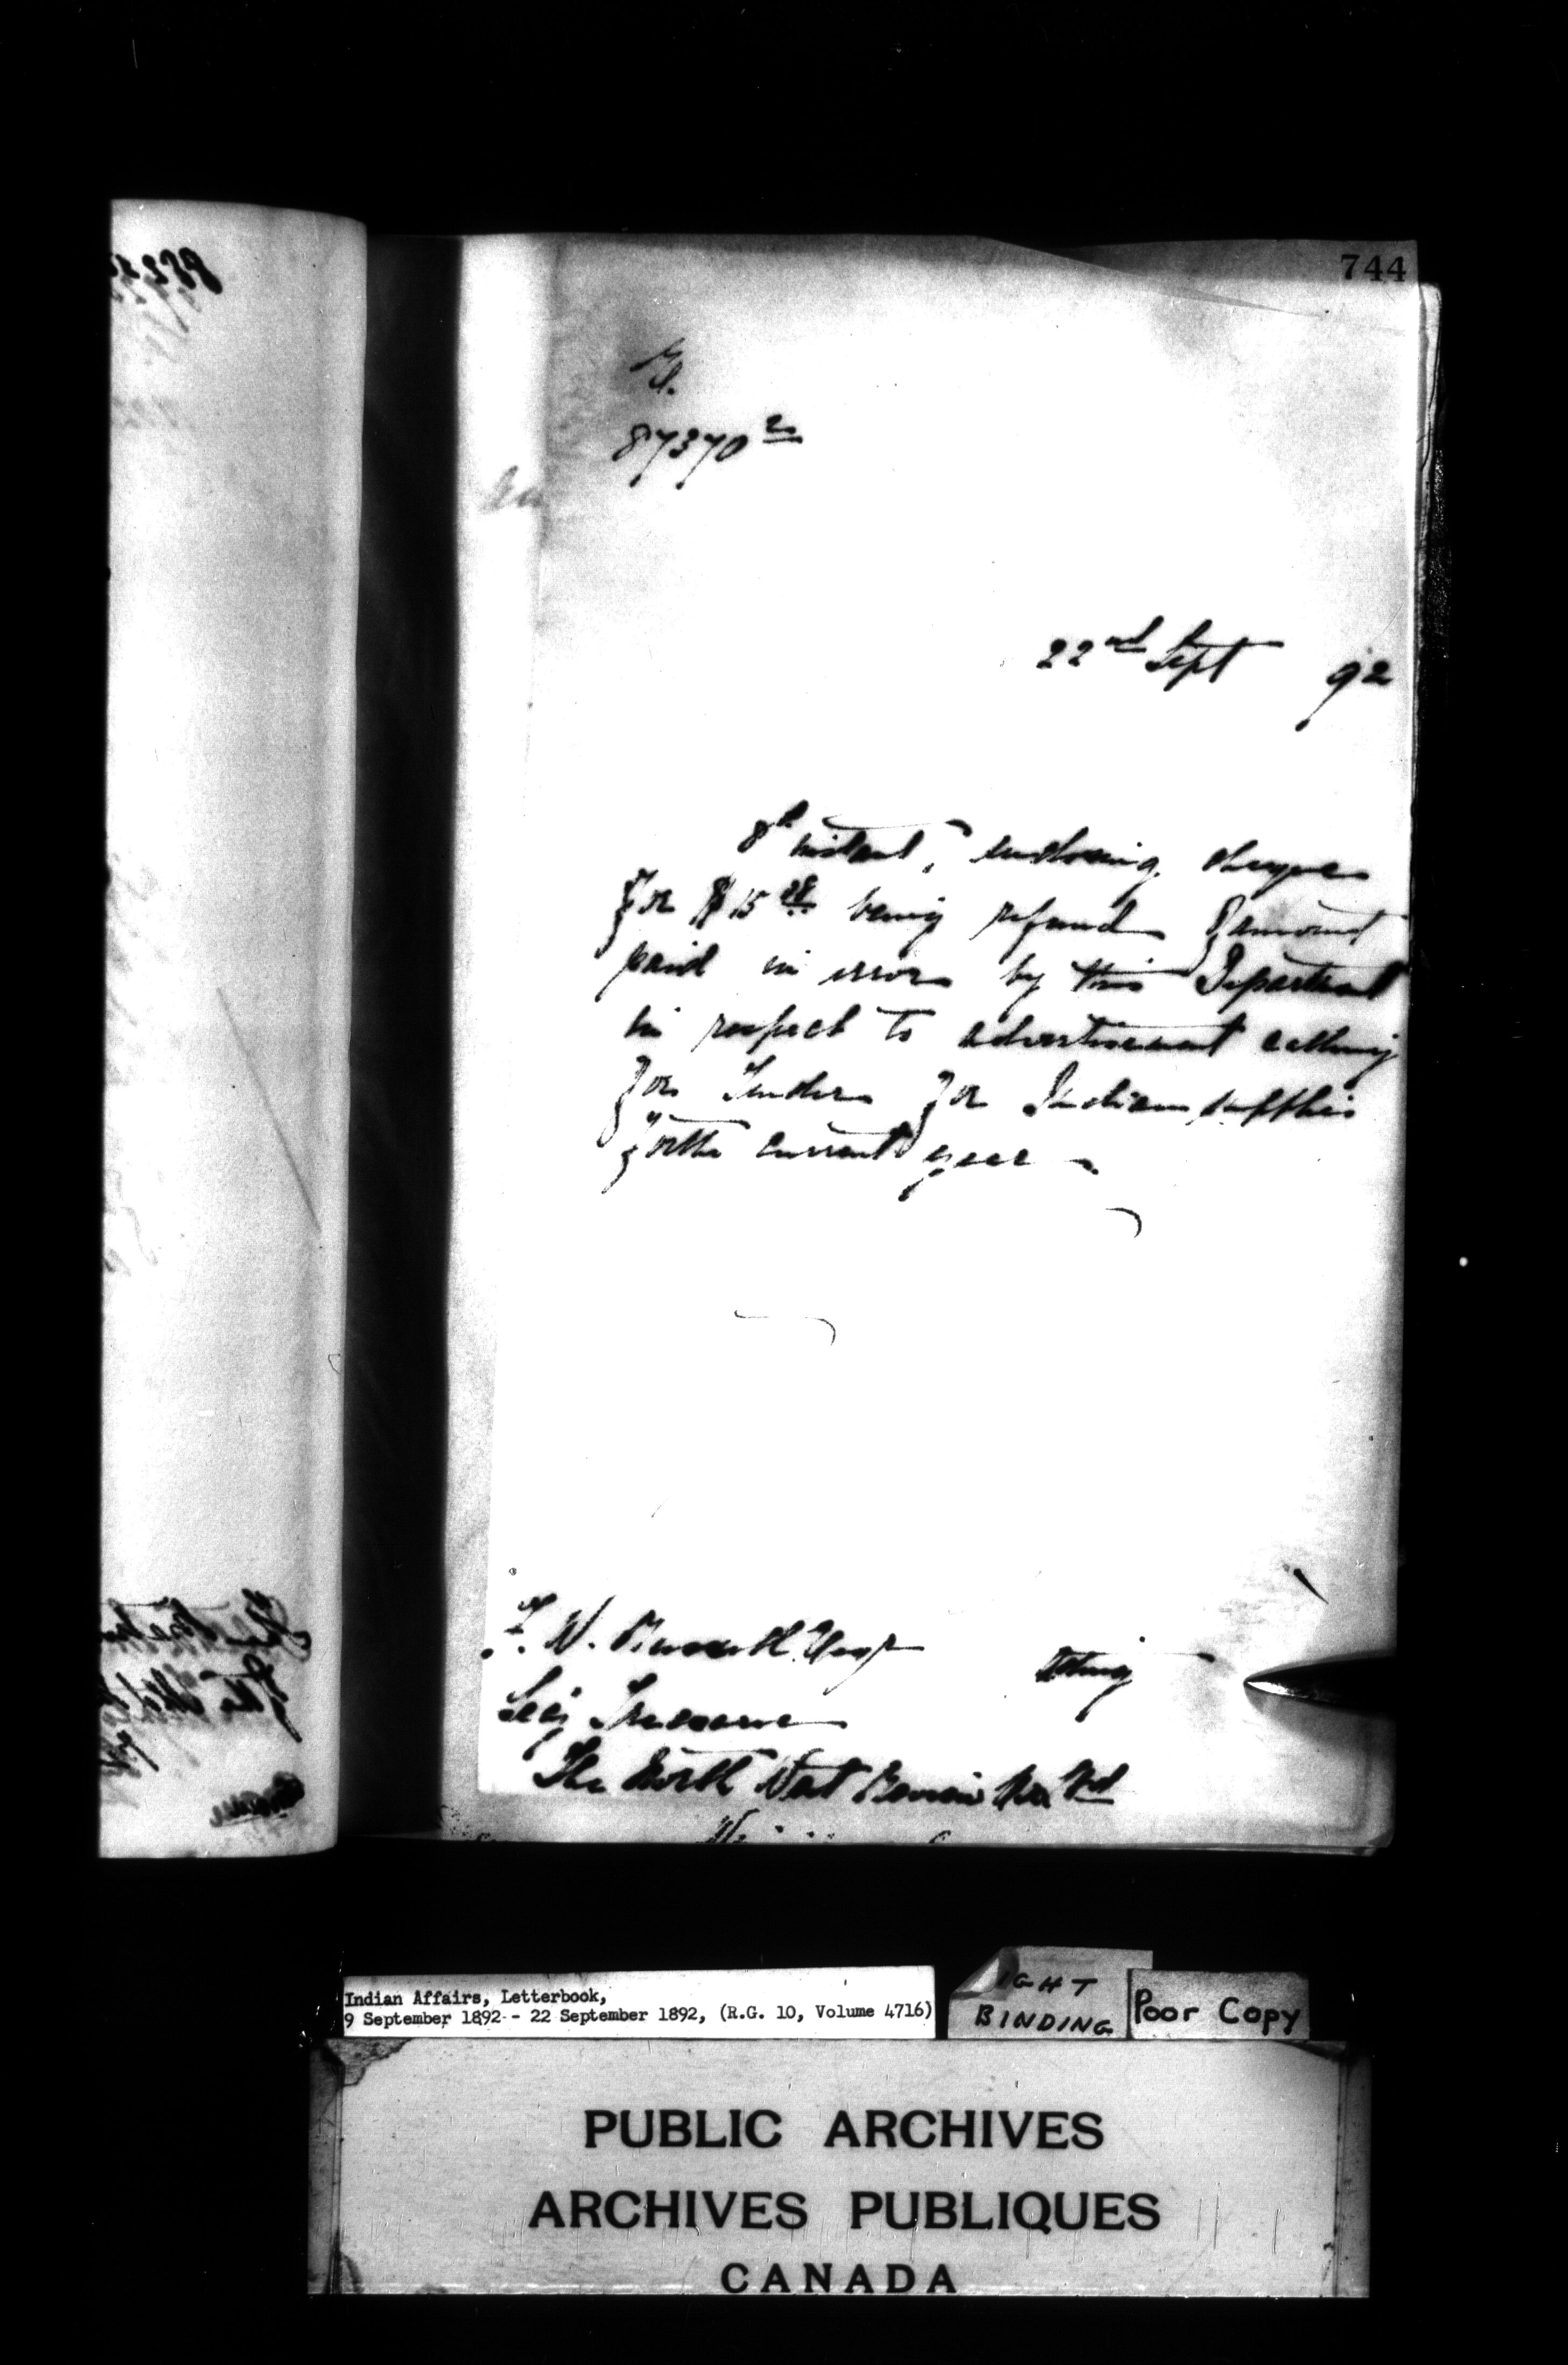 744
87370 2
22nd Sept 92
8th instant, enclosing cheque
for $15 28 being refund of amount
paid in error by this Department
in respect to advertisement calling
for Tenders for Indian supplies
for the current year
F. W. Russell Esqr
Secy Treasurer
The North West Review Co Ltd
Indian Affairs, Letterbook,
9 September 1892 - 22 September 1892, (R.G. 10, Volume 4716)
IGHT
BINDING
Poor Copy
PUBLIC ARCHIVES
ARCHIVES PUBLIQUES
CANADA